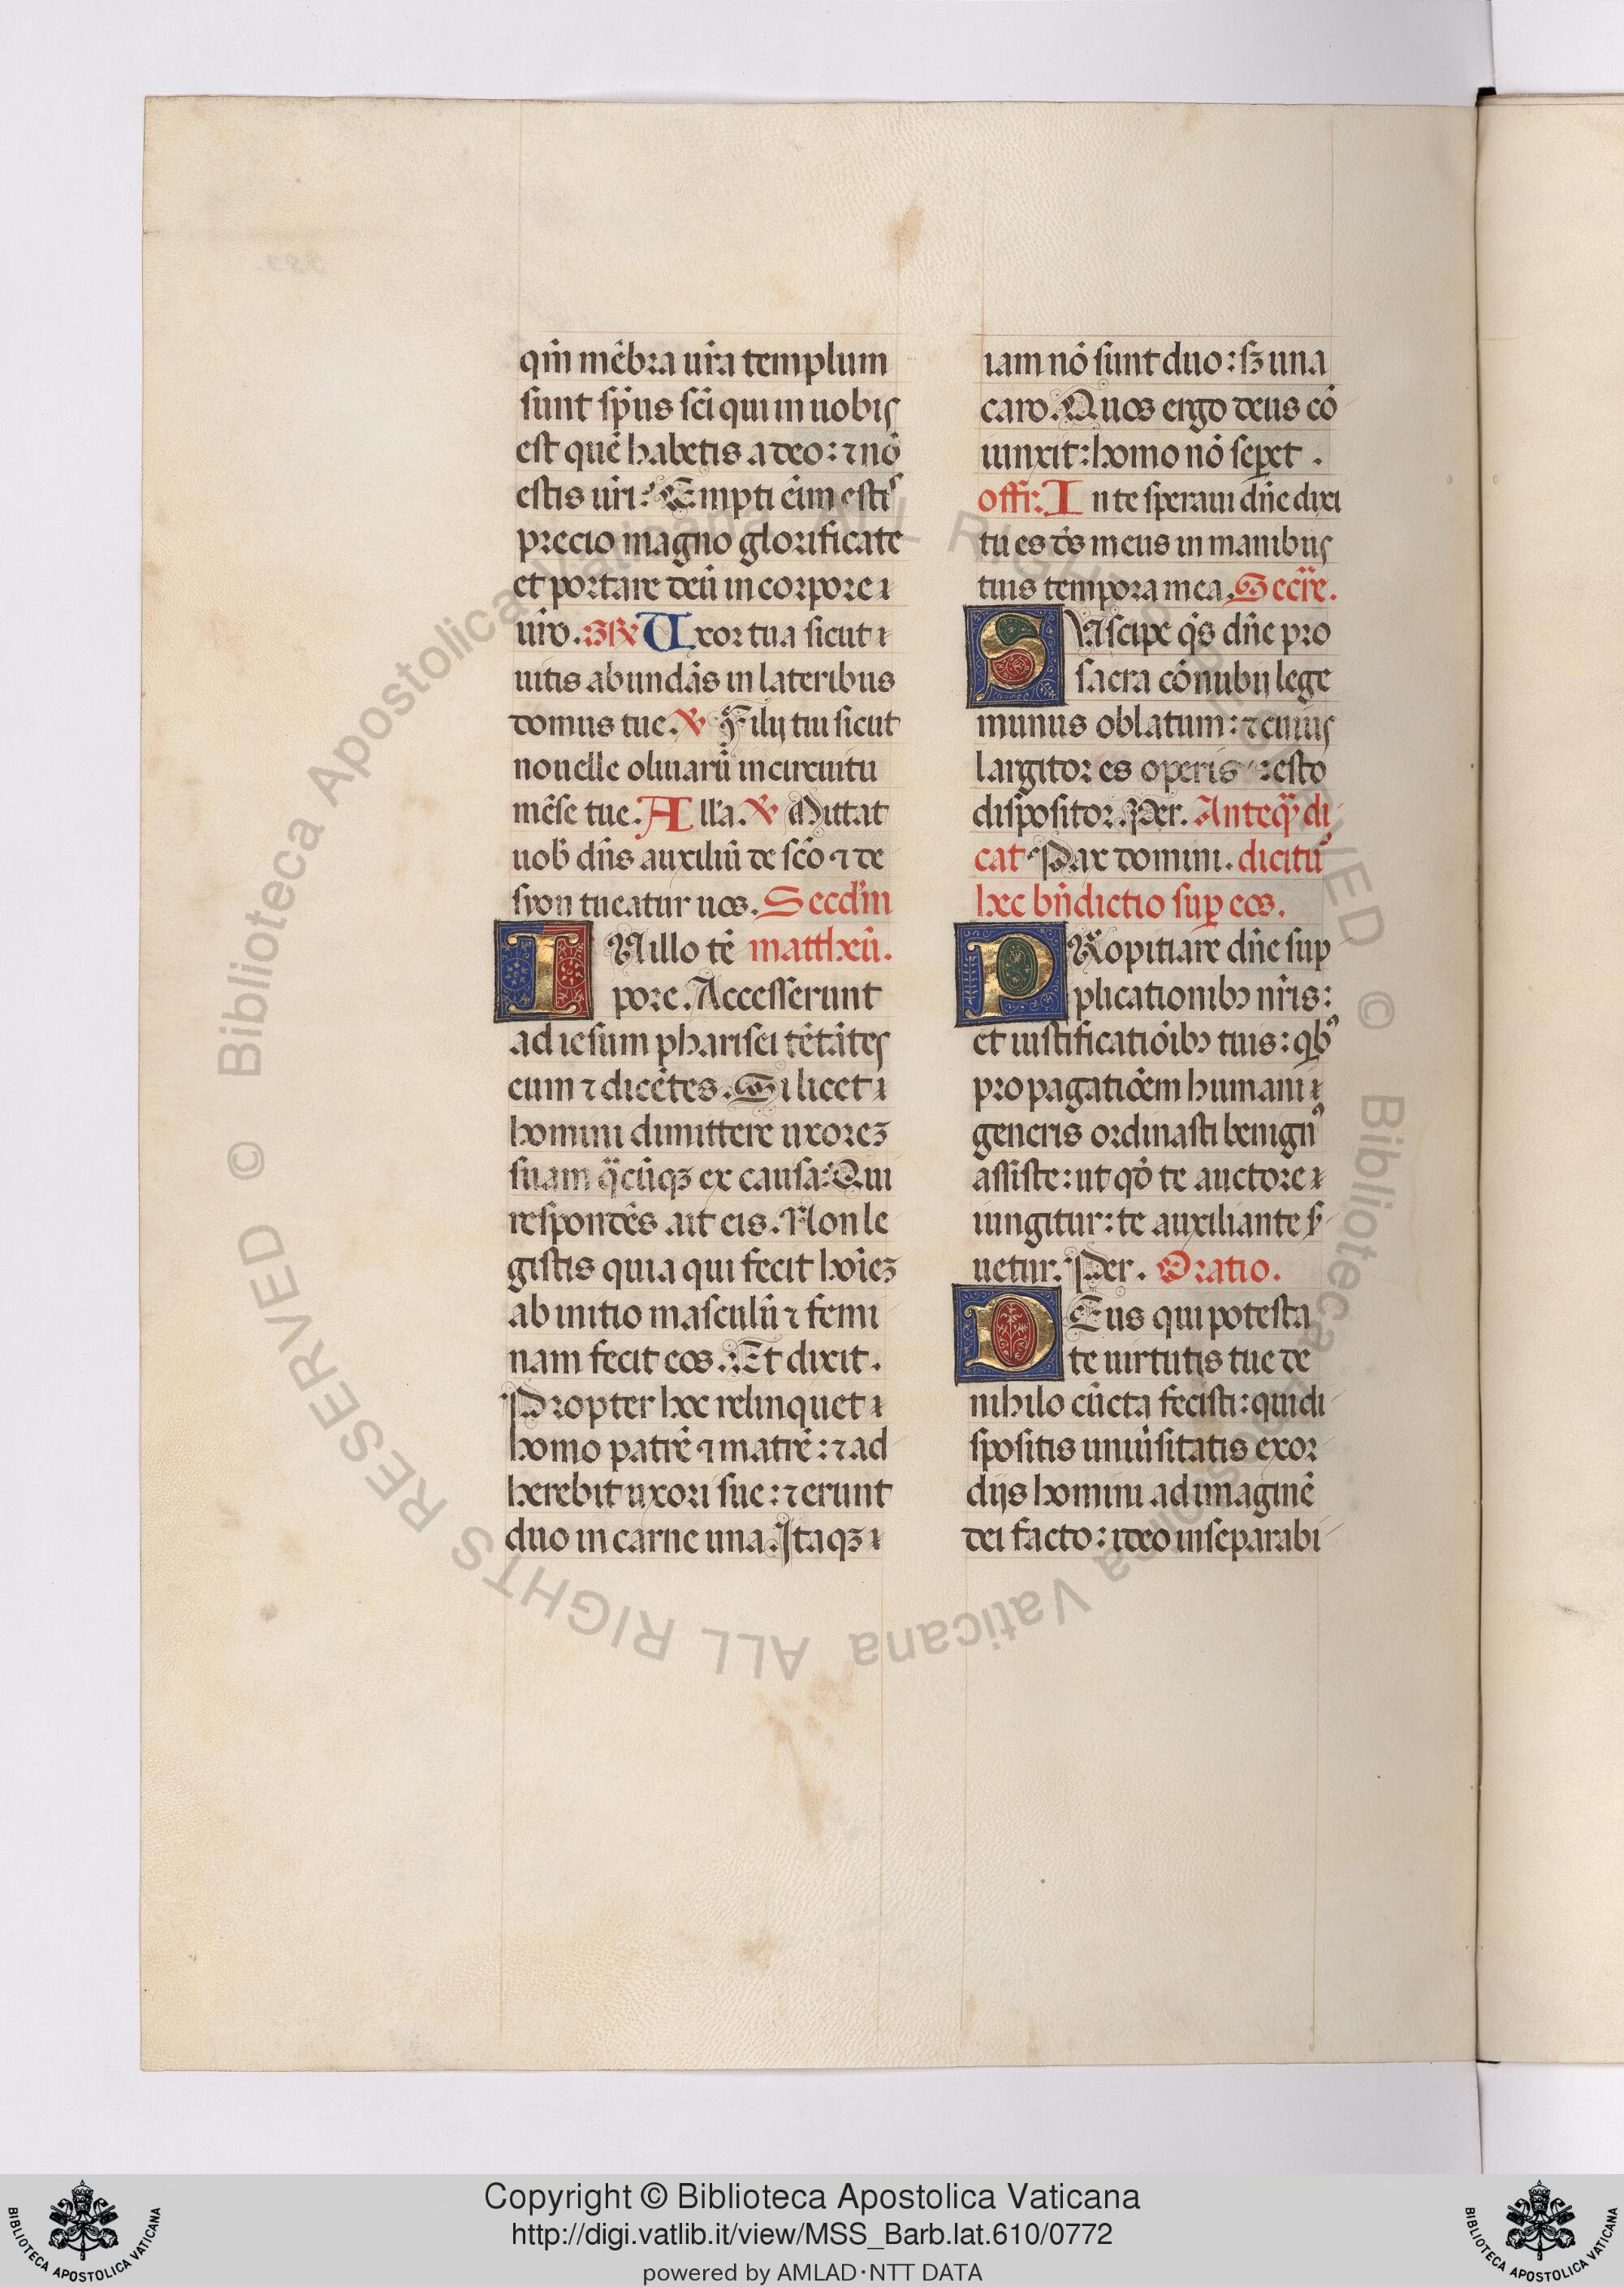 qm̄ mēbra ur̄a templum
sunt sp̄us sc̄i qui in uobis
est quē habetis a deo: ⁊ nō
estis ur̄i: Empti eīm estis
precio magno glorificate
et portate deū in corpore
ur̄o. GR̄ Uxor tua sicut
uitis abundās in lateribus
domus tue. ℣ Filij tui sicut
nouelle oliuarū in circuitu
mēse tue. All'a. ℣ Mittat
uob̄ dn̄s auxiliū de sc̄o ⁊ de
syon tueatur uos. Secd'm
IN illo tē mattheū.
pore. Accesserunt
ad iesum pharisei tētātes
eum ⁊ dicētes. Si licet
homini dimittere uxorez
suam q̄cūqz ex causa: Qui
respondēs ait eis. Non le
gistis quia qui fecit hoīez
ab initio masculū ⁊ femi
nam fecit eos. Et dixit.
Propter hec relinquet
homo patrē ⁊ matrē: ⁊ ad
herebit uxori sue: ⁊ erunt
duo in carne una. Itaqz
iam nō sunt duo: sz una
caro. Quos ergo deus cō
iunxit: homo nō seꝑet.
offr: In te speraui dn̄e dixi
tu es ds̄ meus in manibus
tuis tempora mea. Secr̄e.
SUscipe qs̄ dn̄e pro
sacra cōnubij lege
munus oblatum: ⁊ cuius
largitor es operis: esto
dispositor. Per. Anteq̄ di
cat Pax domini. dicitur
hec bn̄dictio suꝑ eos.
PRopitiare dn̄e sup
plicationibꝫ nr̄is:
et iustificatiōibꝫ tuis: qb'
propagatiōem humani
generis ordinasti benign'
assiste: ut qō te auctore
iungitur: te auxiliante s'
uetur. Per. Oratio.
DEus qui potesta
te uirtutis tue de
nihilo cūcta fecisti: qui di
spositis uniu'sitatis exor
dijs homini ad imaginē
dei facto: ideo inseparabi
Copyright © Biblioteca Apostolica Vaticana
http://digi.vatlib.it/view/MSS_Barb.lat.610/0772
powered by AMLAD·NTT DATA
BIBLIOTECA APOSTOLICA VATICANA
BIBLIOTECA APOSTOLICA VATICANA
© Biblioteca Apostolica Vaticana ALL RIGHTS RESERVED © Biblioteca Apostolica Vaticana ALL RIGHTS RESERVED